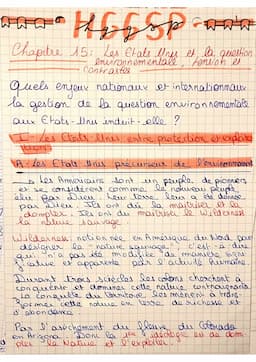 HGGSP
Chapitre 15: Les Etats Unis et la question
environnementale, tension et
contrastes
Quels enjeux nationaux et internationaux
la gestion de la question environnementale
aux Etats-Unis induit-elle ?
I- Les Etats Unis, entre protection et exploi
tation
A- Les Etats Unis précurseur de l'environnement
Les Américains sont un peuple de pionniers
et se considèrent comme le nouveau peuple
élu par Dieu. Leur terre leur a été donnée
par Dieu. Ils ont dû la maîtriser et la
dompter. Ils ont du maîtriser le Wilderness
la nature sauvage
Wilderness: notion née en Amérique du Nord pour
désigner la nature sauvage, c'est-à-dire
qui n'a pas été modifiée de manière signi
ficative et apparente par l'activité humaine
Durant trois siècles les colons cherchent à
conquérir et dominer cette nature
la conquête du territoire les mènent à trans
former cette nature en terre de richesse et
d'abondance
Par l'assèchement du fleuve du Colorado
en Arizona. Donc la 1ère idéologie est de dom
pter la Nature et l'exploiter.